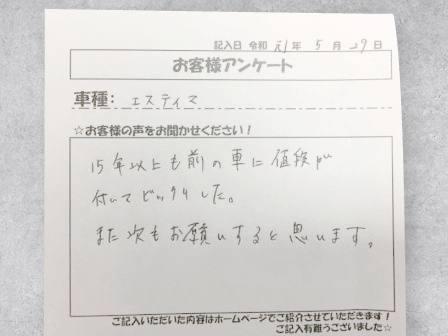 記入日 令和 元年 5月29日
お客様アンケート
車種： エスティマ
☆お客様の声をお聞かせください！
15年以上も前の車に値段が
付いてビックリした。
また次もお願いすると思います。
ご記入いただいた内容はホームページでご紹介させていただきます！
ご記入有難うございました☆